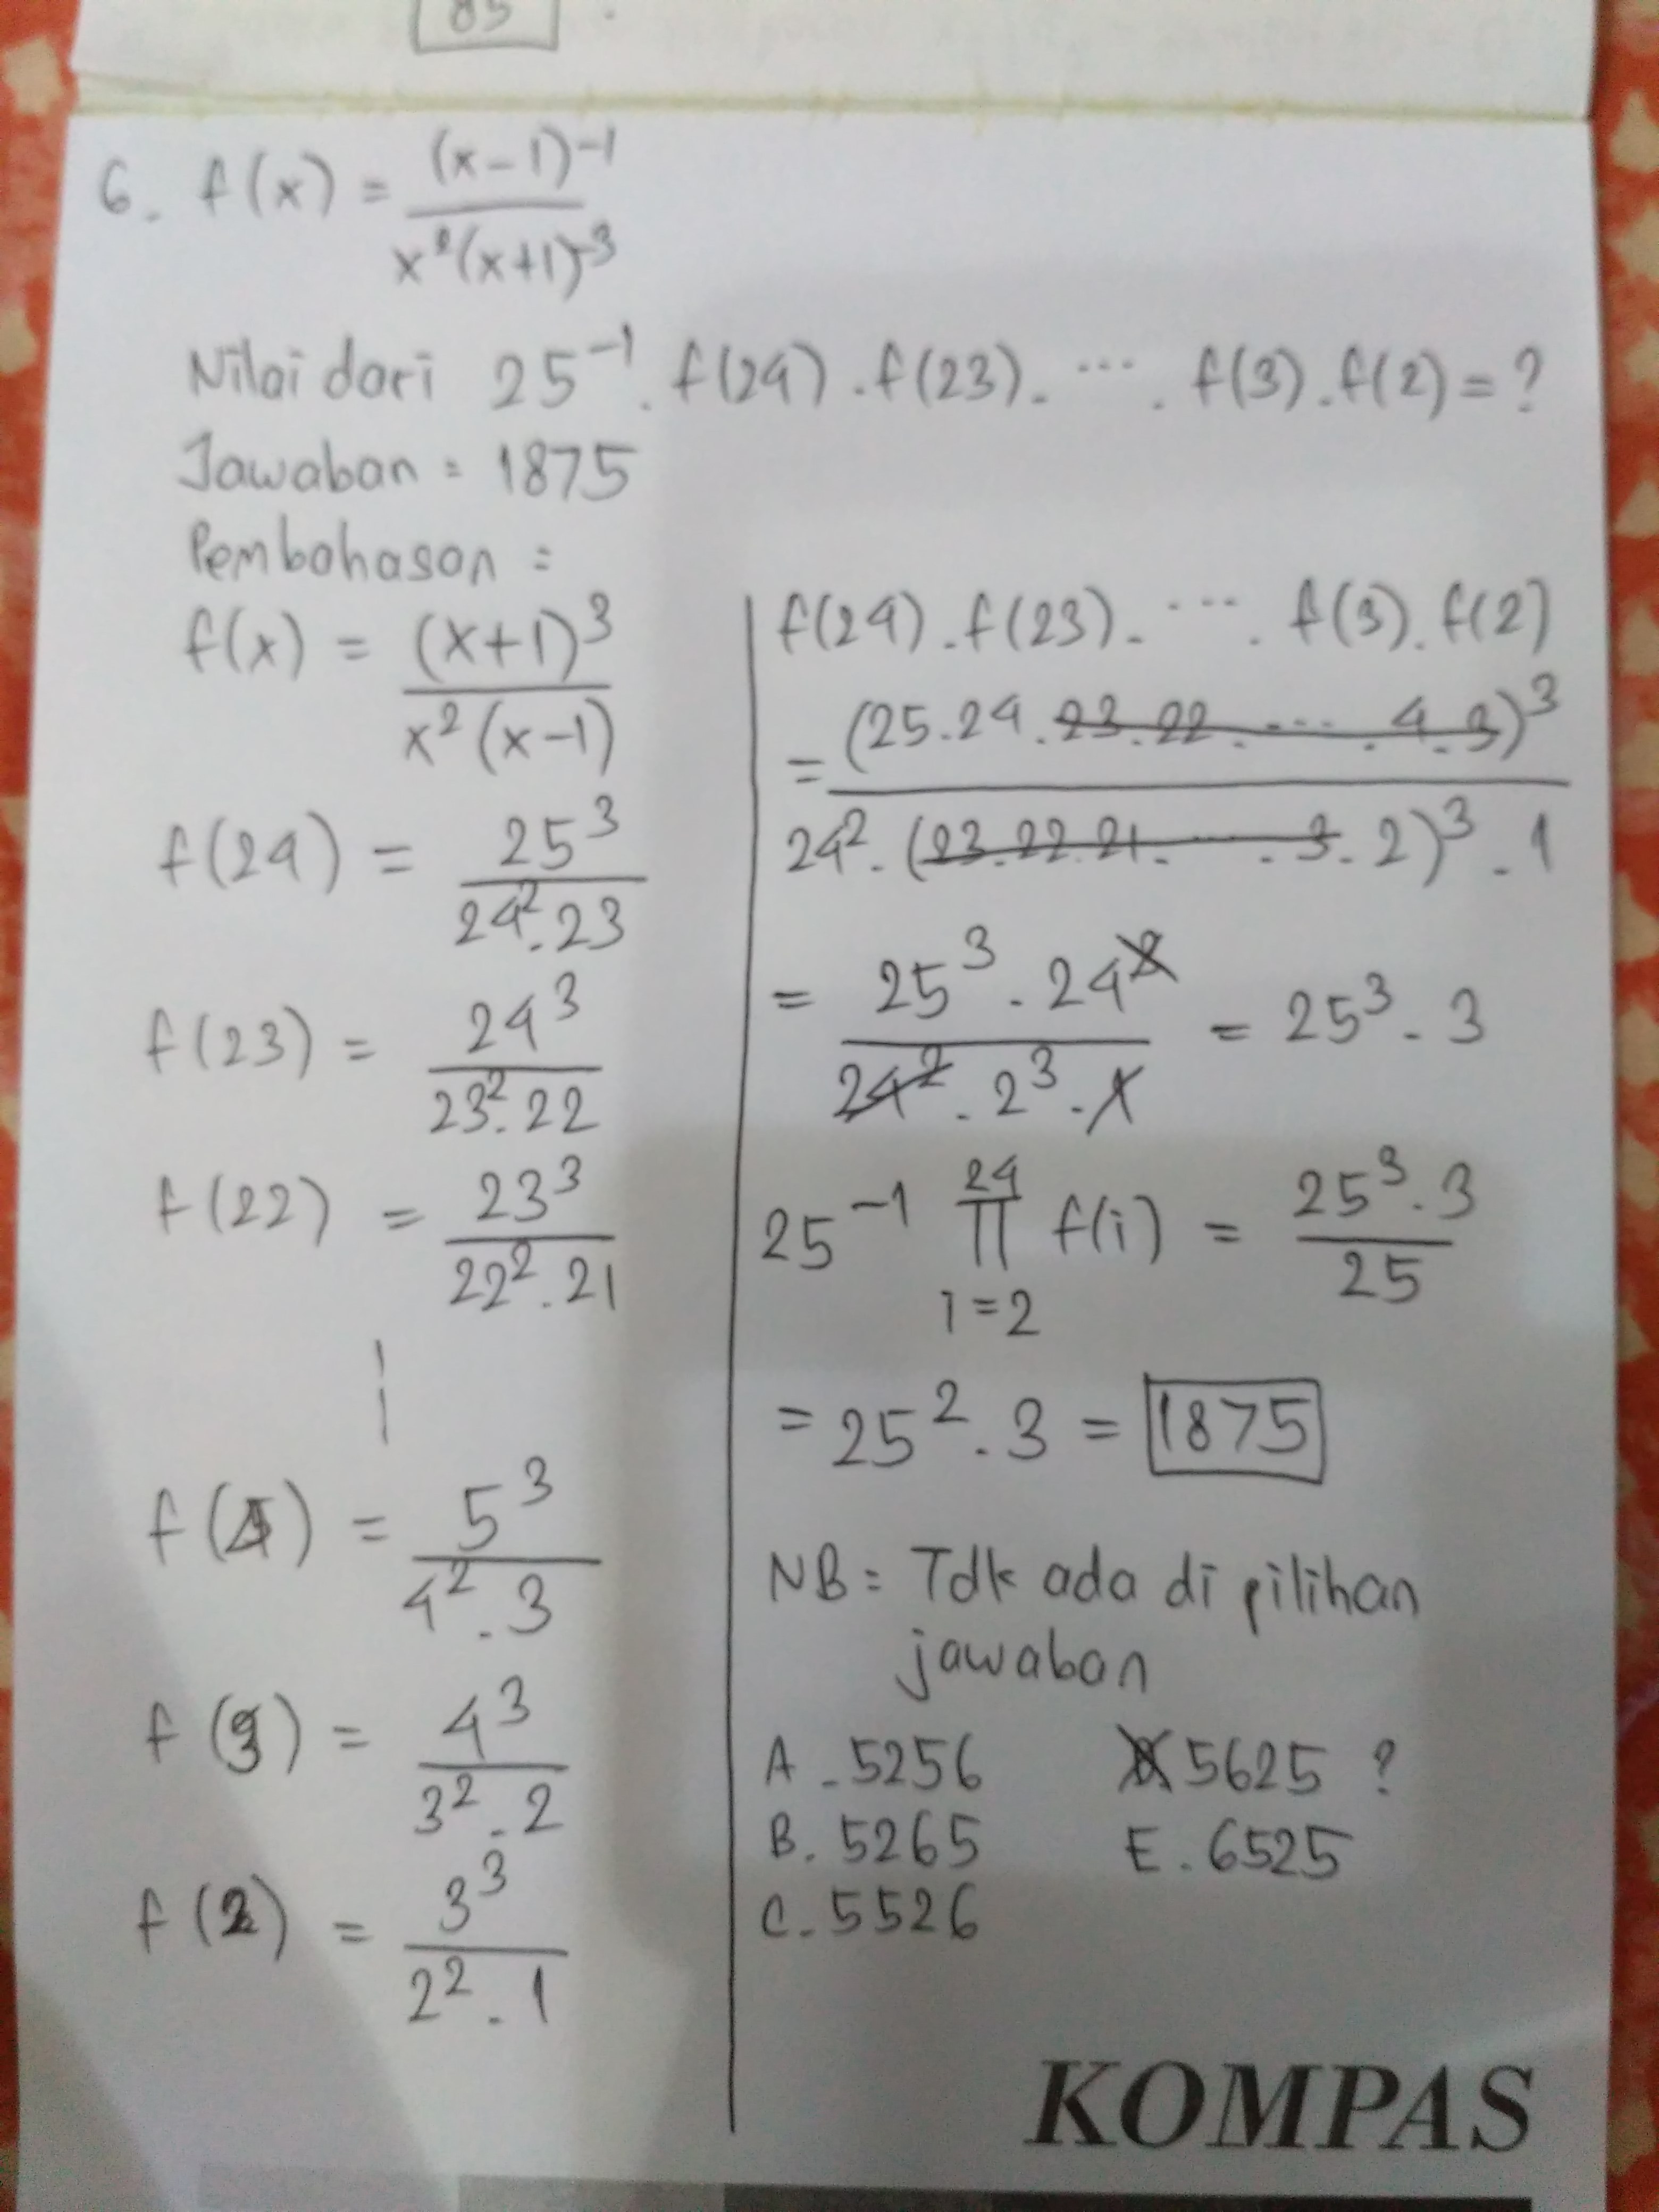 85
6. f(x) = (x-1)^-1 / x^2(x+1)^-3
Nilai dari 25^-1 . f(24) . f(23) . ... . f(3) . f(2) = ?
Jawaban = 1875
Pembahasan =
f(x) = (x+1)^3 / x^2(x-1)
f(24) = 25^3 / 24^2 . 23
f(23) = 24^3 / 23^2 . 22
f(22) = 23^3 / 22^2 . 21
f(4) = 5^3 / 4^2 . 3
f(3) = 4^3 / 3^2 . 2
f(2) = 3^3 / 2^2 . 1
f(24) . f(23) . ... . f(3) . f(2)
= (25 . 24 . 23 . 22 . ... . 4 . 3)^3 / 24^2 . (23 . 22 . 21 . ... . 3 . 2)^3 . 1
= 25^3 . 24^3 / 24^2 . 2^3 . 1 = 25^3 . 3
25^-1 ∏ i=2 24 f(i) = 25^3 . 3 / 25
= 25^2 . 3 = 1875
NB = Tdk ada di pilihan
jawaban
A. 5256
B. 5265
C. 5526
D 5625 ?
E. 6525
KOMPAS